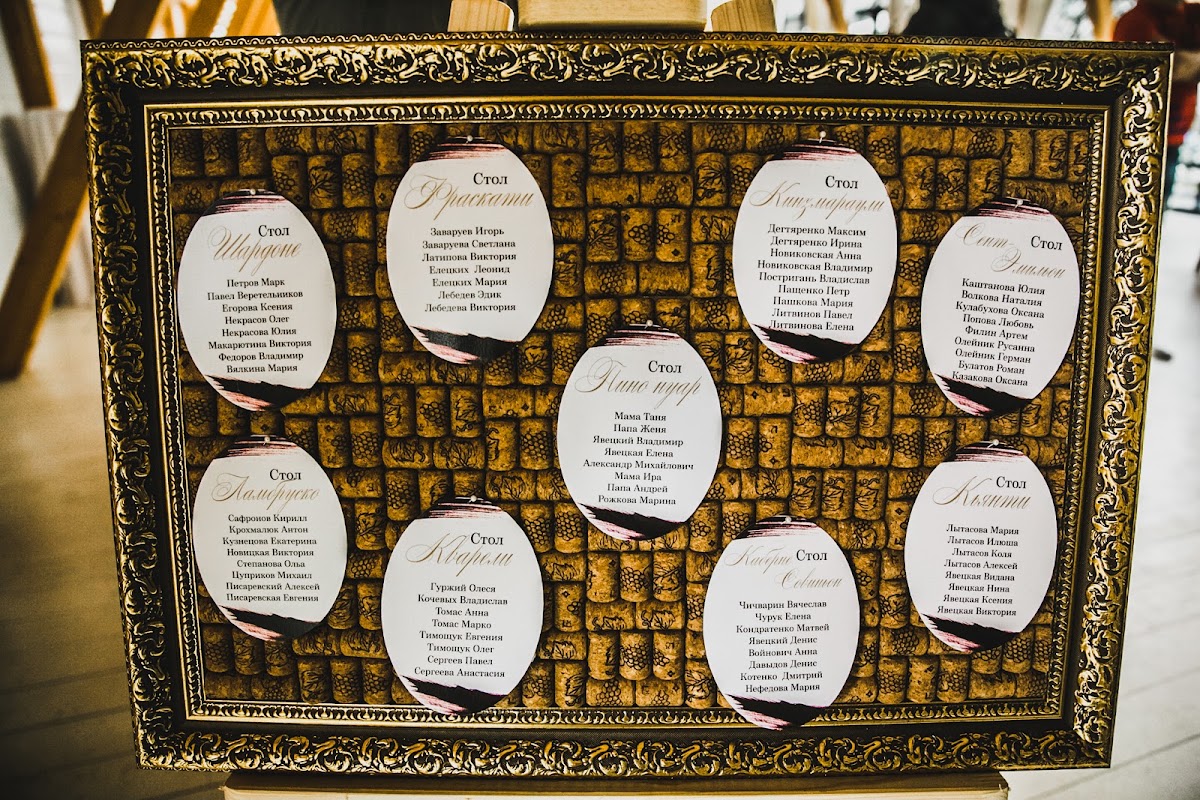 Стол
Шардоне
Петров Марк
Павел Веретельников
Егорова Ксения
Некрасов Олег
Некрасова Юлия
Макарютина Виктория
Федоров Владимир
Вялкина Мария
Стол
Фраскати
Заваруев Игорь
Заваруева Светлана
Латипова Виктория
Елецких Леонид
Елецких Мария
Лебедев Эдик
Лебедева Виктория
Стол
Кинзмараули
Дегтяренко Максим
Дегтяренко Ирина
Новиковская Анна
Новиковская Владимир
Постригань Владислав
Пащенко Петр
Пашкова Мария
Литвинов Павел
Литвинова Елена
Сент- Стол
Эмильон
Каштанова Юлия
Волкова Наталия
Кулабухова Оксана
Попова Любовь
Филин Артем
Олейник Русанна
Олейник Герман
Булатов Роман
Казакова Оксана
Стол
Пино нуар
Мама Таня
Папа Женя
Явецкий Владимир
Явецкая Елена
Александр Михайлович
Мама Ира
Папа Андрей
Рожкова Марина
Стол
Ламбруско
Сафроиов Кирилл
Крохмалюк Антон
Кузнецова Екатерина
Новицкая Виктория
Степанова Ольа
Цуприков Михаил
Писаревский Алексей
Писаревская Евгения
Стол
Кварели
Гуржий Олеся
Кочевых Владислав
Томас Анна
Томас Марко
Тимощук Евгения
Тимощук Олег
Сергеев Павел
Сергеева Анастасия
Каберне Стол
Совиньон
Чичварин Вячеслав
Чурук Елена
Кондратенко Матвей
Явецкий Денис
Войнович Анна
Давыдов Денис
Котенко Дмитрий
Нефедова Мария
Стол
Кьянти
Лытасова Мария
Лытасов Илюша
Лытасов Коля
Лытасов Алексей
Явецкая Видана
Явецкая Нина
Явецкая Ксения
Явецкая Виктория